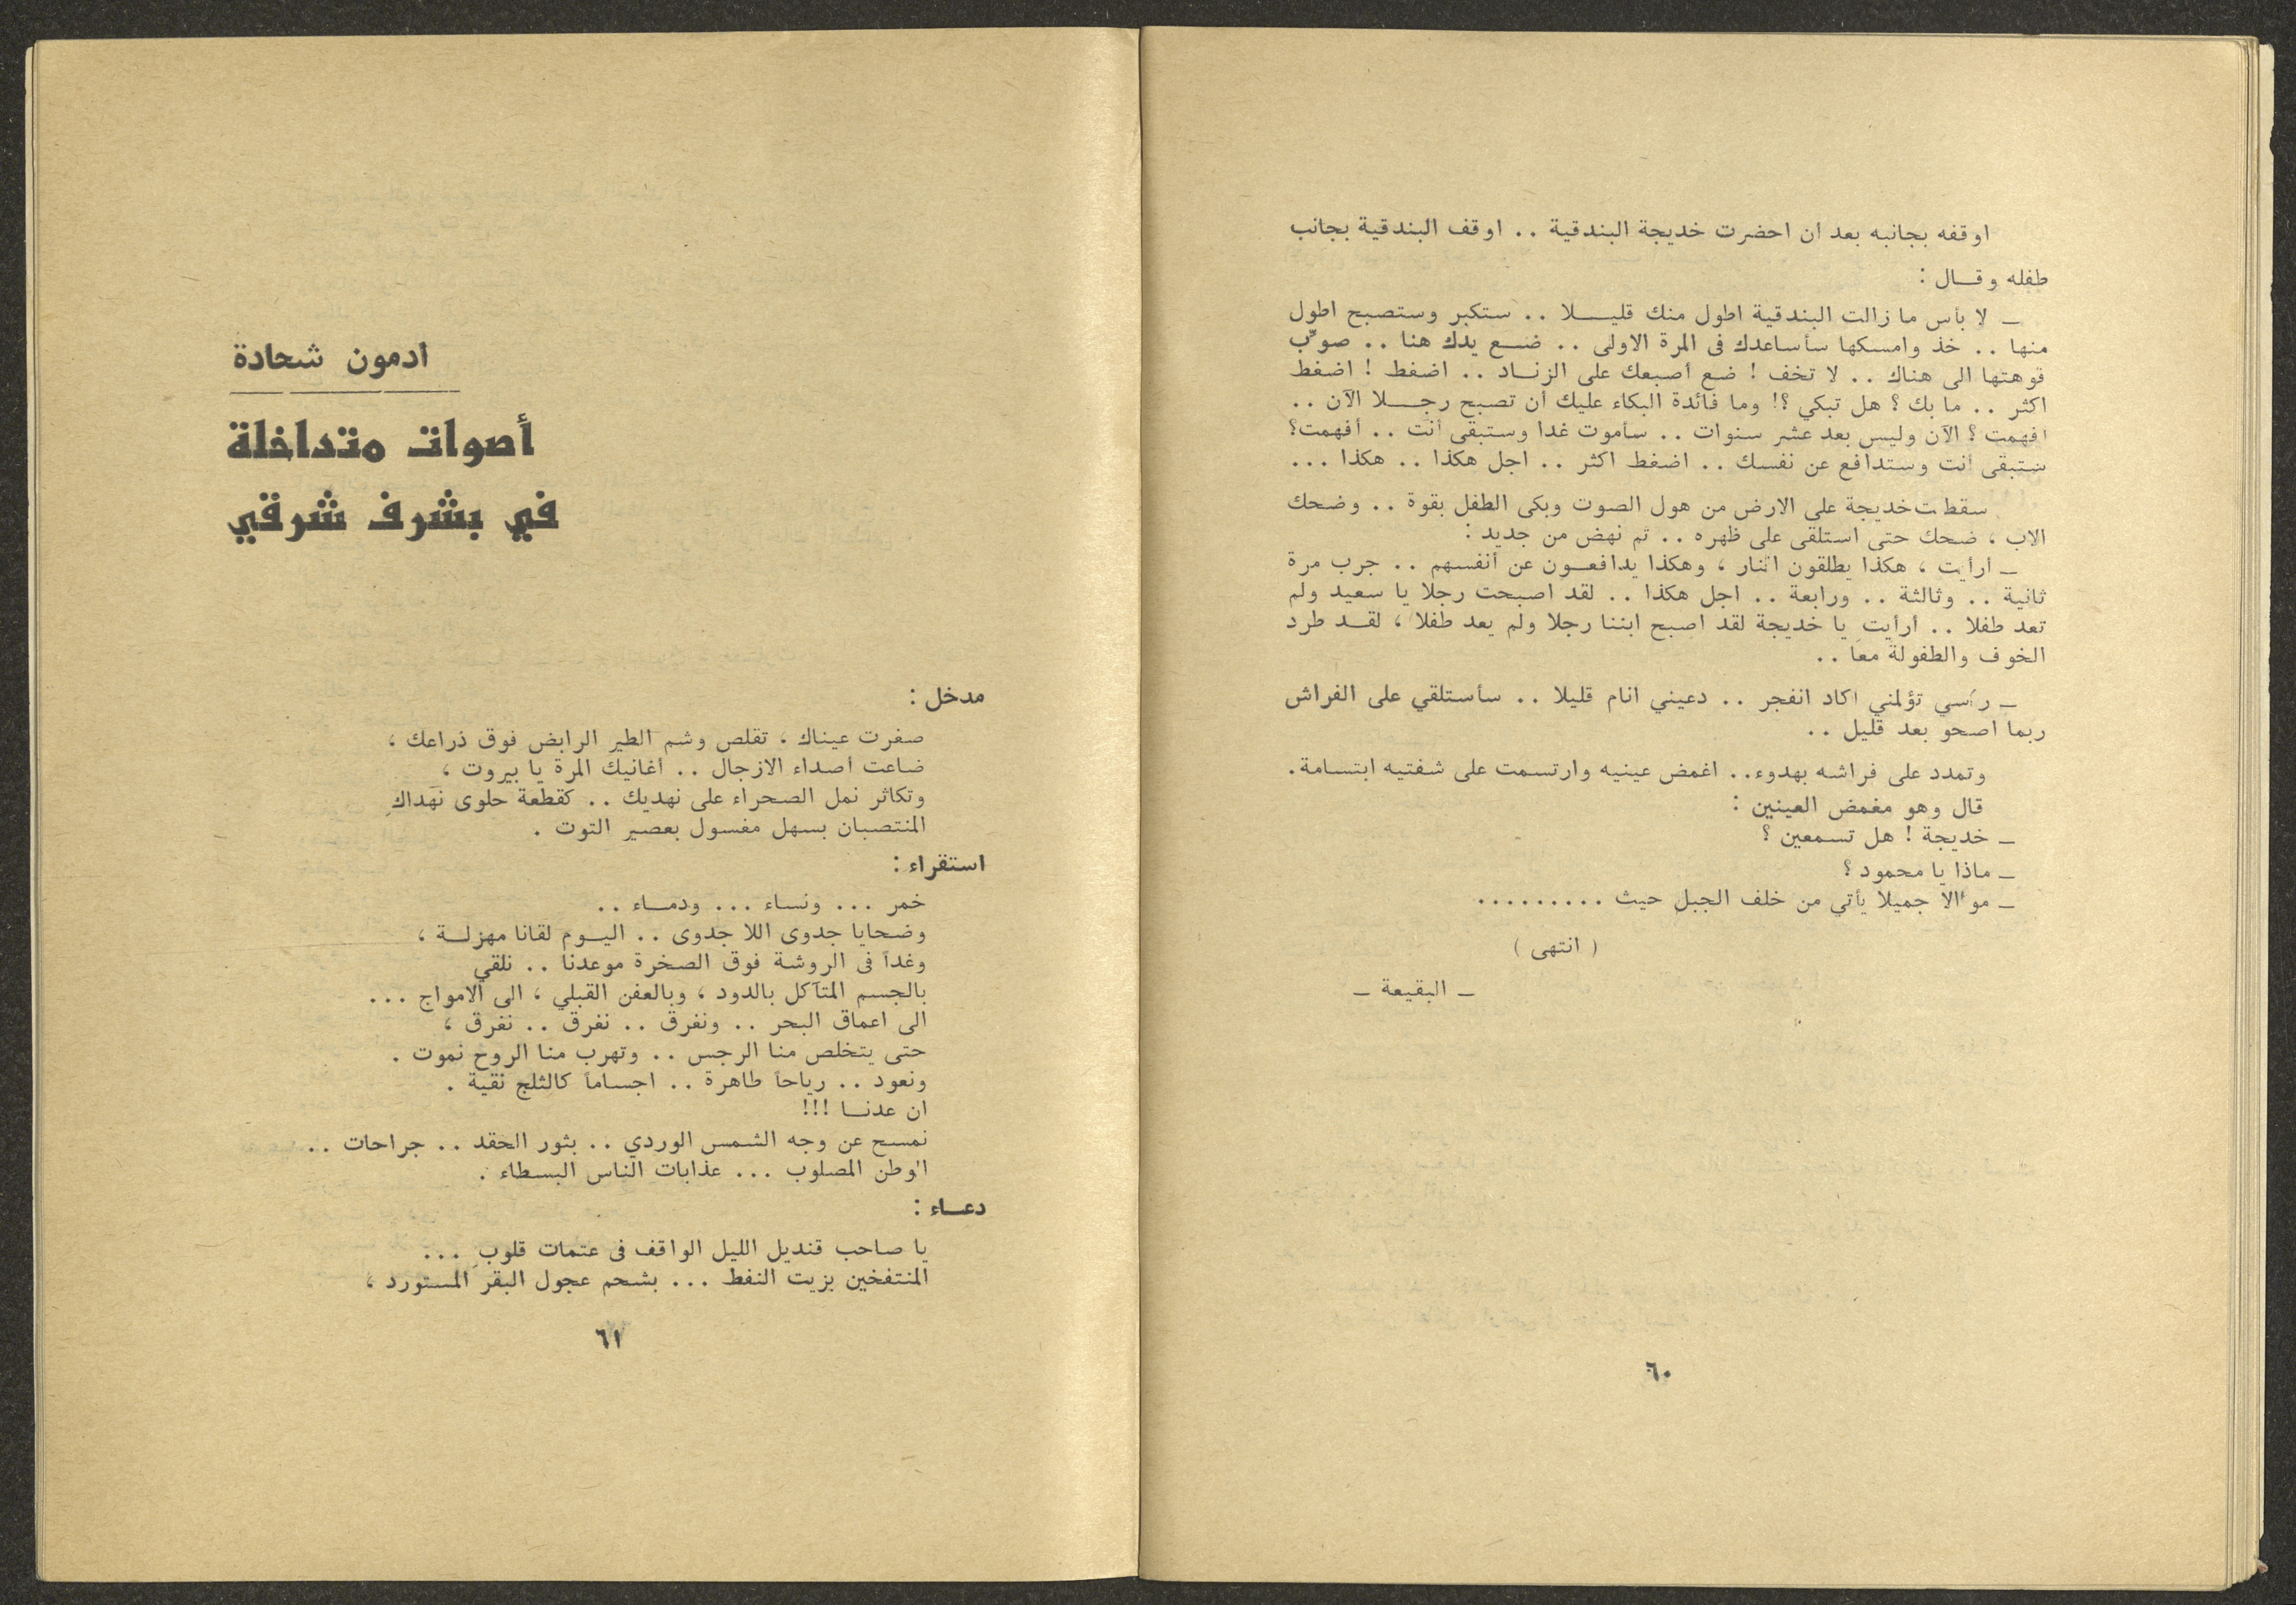 اوقفه بجانبه بعد ان احضرت خديجة البندقية .. اوقف البندقية بجانب
طفله وقـــال :
ــ لا بأس ما زالت البندقية اطول منك قليـــــلا .. ستكبر وستصبح اطول
منها .. خذ وامسكها سأساعدك فى المرة الاولى .. ضـــع يدك هنا .. صوّب
فوهتها الى هناك .. لا تخف ! ضع أصبعك على الزنـــاد .. اضغط ! اضغط
اكثر .. ما بك ؟ هل تبكي ؟! وما فائدة البكاء عليك أن تصبح رجـــــلا الآن ..
افهمت ؟ الآن وليس بعد عشر سنوات .. سأموت غدا وستبقى أنت .. أفهمت؟
ستبقى أنت وستدافع عن نفسك .. اضغط اكثر .. اجل هكذا .. هكذا ...
سقطت خديجة على الارض من هول الصوت وبكى الطفل بقوة .. وضحك
الاب ، ضحك حتى استلقى على ظهره .. ثم نهض من جديد :
ــ أرأيت ، هكذا يطلقون النار ، وهكذا يدافعـــون عن أنفسهم .. جرب مرة
ثانية .. وثالثة .. ورابعة .. اجل هكذا .. لقد اصبحت رجلا يا سعيد ولم
تعد طفلا .. أرأيتِ يا خديجة لقد اصبح ابننا رجلا ولم يعد طفلا ، لقـــد طرد
الخوف والطفولة معا ..
ــ رأسي تؤلمني اكاد انفجر .. دعيني انام قليلا .. سأستلقي على الفراش
ربما اصحو بعد قليل ..
وتمدد على فراشه بهدوء.. اغمض عينيه وارتسمت على شفتيه ابتسامة.
قال وهو مغمض العينين :
ــ خديجة ! هل تسمعين ؟
ــ ماذا يا محمود ؟
ــ موالا جميلا يأتي من خلف الجبل حيث .........
( انتهى )
ــ البقيعة ــ
٦٠
أدمون شحادة
أصوات متداخلة
في بشرف شرقي
مدخل :
صفرت عيناك ، تقلص وشم الطير الرابض فوق ذراعك ،
ضاعت أصداء الازجال .. أغانيك المرة يا بيروت ،
وتكاثر نمل الصحراء على نهديك .. كقطعة حلوى نهداكِ
المنتصبان بسهل مغسول بعصير التوت .
استقراء :
خمر ... ونساء ... ودمـــاء ..
وضحايا جدوى اللا جدوى .. اليـــوم لقانا مهزلـــة ،
وغداً فى الروشة فوق الصخرة موعدنا .. نلقي
بالجسم المتآكل بالدود ، وبالعفن القبلي ، الى الامواج ...
الى اعماق البحر .. ونغرق .. نغرق .. نغرق ،
حتى يتخلص منا الرجس .. وتهرب منا الروح نموت .
ونعود .. رياحاً طاهرة .. اجساماً كالثلج نقية .
ان عدنـــا !!!
نمسح عن وجه الشمس الوردي .. بثور الحقد .. جراحات ..
الوطن المصلوب ... عذابات الناس البسطاء .
دعـــاء :
يا صاحب قنديل الليل الواقف فى عتمات قلوبِ ...
المنتفخين بزيت النفط ... بشحم عجول البقر المستورد ،
٦١